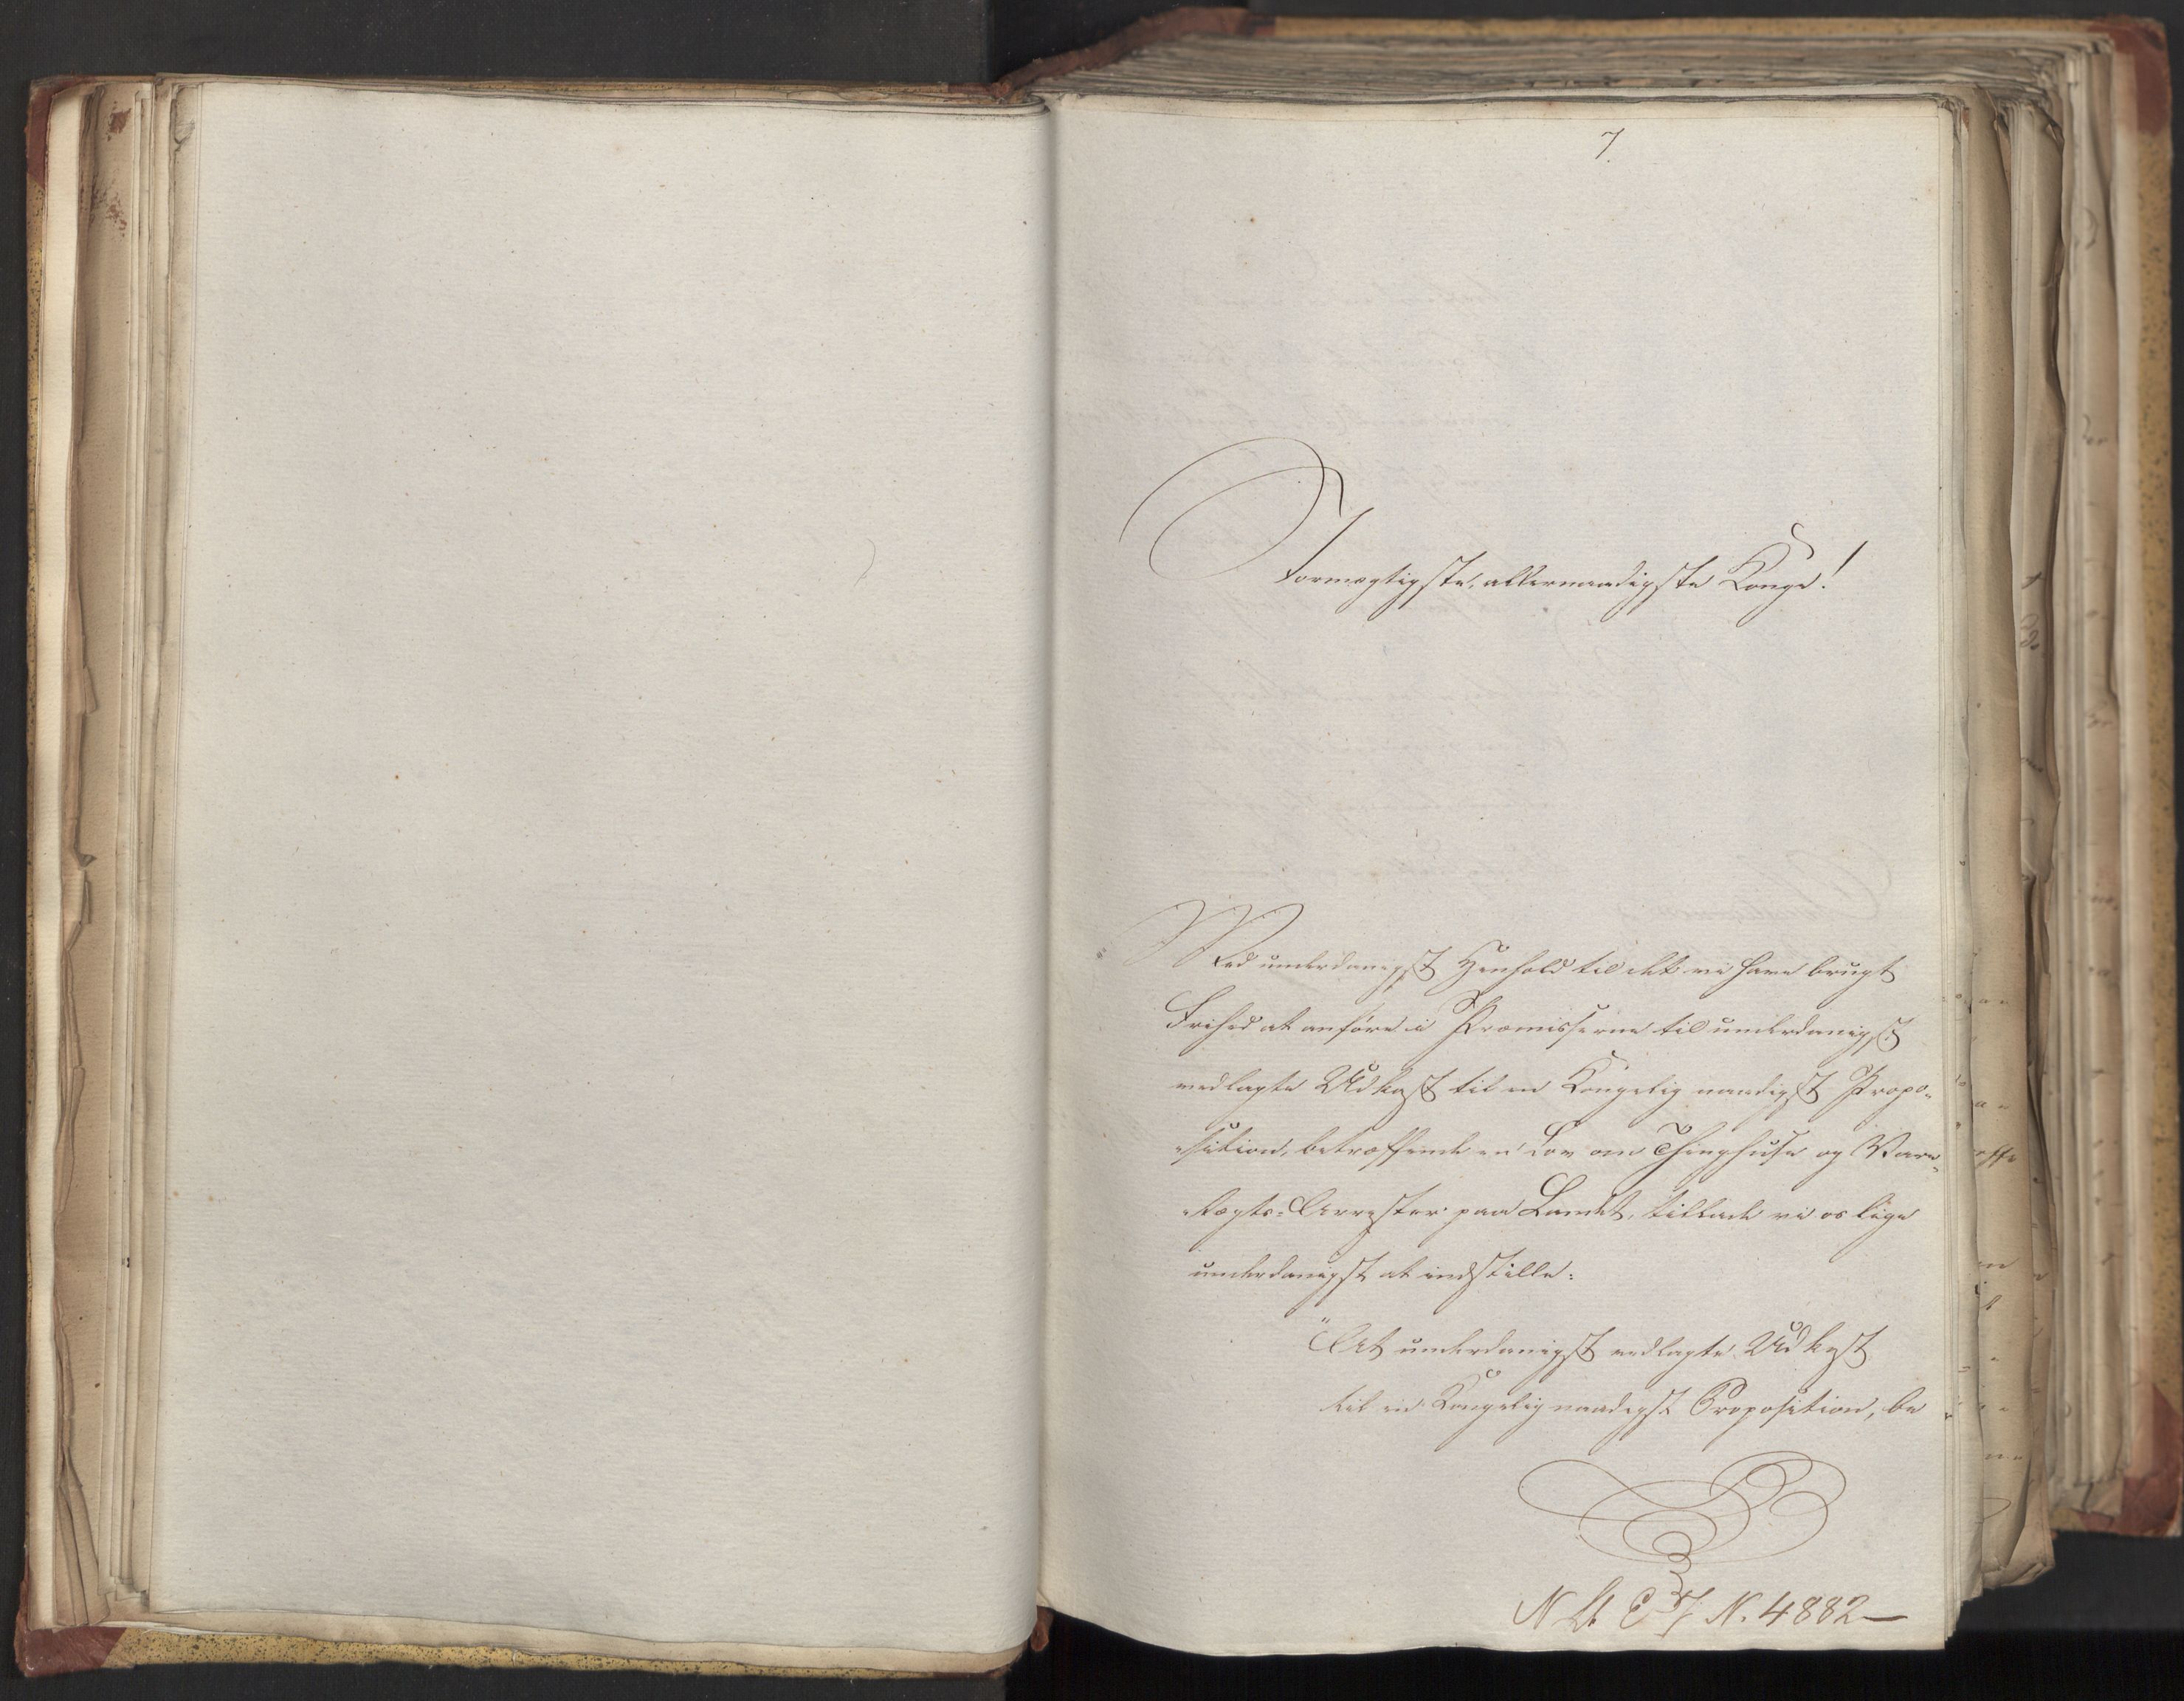 7.
Stormægtigste, allernaadigste Konge!
Med underdanigst Henhold til det vi have brugt
Frihed at anføre i Præmisserne til underdanigst
vedlagte Udkast til en Kongelig naadigst Propo-
-sition, betræffende en Lov om Thinghuse og Vare-
-tægts-Arrester paa Landet, tillade vi os lige
underdanigst at indstille:
"At underdanigst vedlagte Udkast
til en Kongelig naadigst Proposition, be
N. 4882—